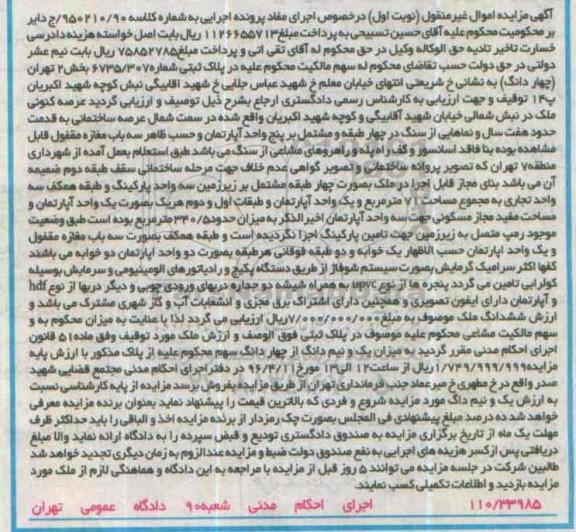 آگهی مزایده اموال غیرمنقول (نوبت اول) درخصوص اجرای مفاد پرونده اجرایی به شماره کلاسه ۹۵۰۲۱۰/۹۰/ج دایر
بر محکومیت محکوم علیه آقای حسین تسبیحی به پرداخت مبلغ ۱۱۲۶۶۵۵۷۱۳ ریال بابت اصل خواسته هزینه دادرسی
خسارت تاخیر تادیه حق الوکاله وکیل در حق محکوم له آقای تقی انی و پرداخت مبلغ ۷۵۸۵۲۷۸۵ ریال بابت نیم عشر
دولتی در حق دولت حسب تقاضای محکوم له سهم مالکیت محکوم علیه در پلاک ثبتی شماره ۶۷۳۵/۳۰۷ بخش ۲ تهران
(چهار دانگ) به نشانی خ شریعتی انتهای خیابان معلم خ شهید عباس جلایی خ شهید آقابیگی نبش کوچه شهید اکبریان
پ۱۴ توقیف و جهت ارزیابی به کارشناس رسمی دادگستری ارجاع بشرح ذیل توصیف و ارزیابی گردید عرصه کنونی
ملک در نبش شمالی خیابان شهید آقابیگی و کوچه شهید اکبریان واقع شده در سمت شمال عرصه ساختمانی به قدمت
حدود هفت سال و نماهایی از سنگ در چهار طبقه و مشتمل بر پنج واحد آپارتمان و حسب ظاهر سه باب مغازه مقفول قابل
مشاهده بوده بنا فاقد آسانسور و کف راه پله و راهروهای مشاعی از سنگ می باشد طبق استعلام بعمل آمده از شهرداری
منطقه ۷ تهران که تصویر پروانه ساختمانی و تصویر گواهی عدم خلاف جهت مرحله ساختمانی سقف طبقه دوم ضمیمه
آن می باشد بنای مجاز قابل اجرا در ملک بصورت چهار طبقه مشتمل بر زیرزمین سه واحد پارکینگ و طبقه همکف سه
واحد تجاری به مجموع مساحت ۷۱ مترمربع و یک واحد آپارتمان و طبقات اول و دوم هریک بصورت یک واحد آپارتمان و
مساحت مفید مجاز مسکونی جهت سه واحد آپارتمان اخیر الذکر به میزان حدود ۳۴۰/۵ مترمربع بوده است طبق وضعیت
موجود رمپ متصل به زیرزمین جهت تامین پارکینگ اجرا نگردیده است و طبقه همکف بصورت سه باب مغازه مقفول
و یک واحد آپارتمان حسب الاظهار یک خوابه و دو طبقه فوقانی هرطبقه بصورت دو واحد آپارتمان دو خوابه می باشند
کفها اکثر سرامیک گرمایش بصورت سیستم شوفاژ از طریق دستگاه پکیج و رادیاتورهای آلومینیومی و سرمایش بوسیله
کولر آبی تامین می گردد پنجره ها از نوع upvc به همراه شیشه دو جداره دربهای ورودی چوبی و دیگر دربها از نوع hdf
و آپارتمان دارای آیفون تصویری و همچنین دارای اشتراک برق مجزی و انشعابات آب و گاز شهری مشترک می باشد و
ارزش ششدانگ ملک موصوف به مبلغ ۷/۰۰۰/۰۰۰/۰۰۰ ریال ارزیابی می گردد لذا با عنایت به میزان محکوم به و
سهم مالکیت مشاعی محکوم علیه موصوف در پلاک ثبتی فوق الوصف و ارزش ملک مورد توقیف وفق ماده ۵۱ قانون
اجرای احکام مدنی مقرر گردید به میزان یک و نیم دانگ از چهار دانگ سهم محکوم علیه از پلاک مذکور با ارزش پایه
مزایده ۱/۷۴۹/۹۹۹/۹۹۹ ریال از ساعت ۱۲ الی ۱۳ مورخ ۹۶/۴/۱۱ در دفتر اجرای احکام مدنی مجتمع قضایی شهید
صدر واقع در خ مطهری خ میرعماد جنب فرمانداری تهران از طریق مزایده بفروش برسد مزایده از پایه کارشناسی نسبت
به ارزش یک و نیم دانگ مورد مزایده شروع و فردی که بالاترین قیمت را پیشنهاد نماید بعنوان برنده مزایده معرفی
خواهد شد ده درصد مبلغ پیشنهادی فی المجلس بصورت چک رمزدار از برنده مزایده اخذ و الباقی را باید حداکثر ظرف
مهلت یک ماه از تاریخ برگزاری مزایده به صندوق دادگستری تودیع و قبض سپرده را به دادگاه ارائه نماید والا مبلغ
دریافتی پس از کسر هزینه های اجرایی به نفع صندوق دولت ضبط و مزایده عندالزوم به زمان دیگری تجدید خواهد شد
طالبین شرکت در جلسه مزایده می توانند ۵ روز قبل از مزایده با مراجعه به این دادگاه و هماهنگی لازم از ملک مورد
مزایده بازدید و اطلاعات تکمیلی کسب نمایند.
۱۱۰/۲۳۹۸۵ اجرای احکام مدنی شعبه ۹۰ دادگاه عمومی تهران